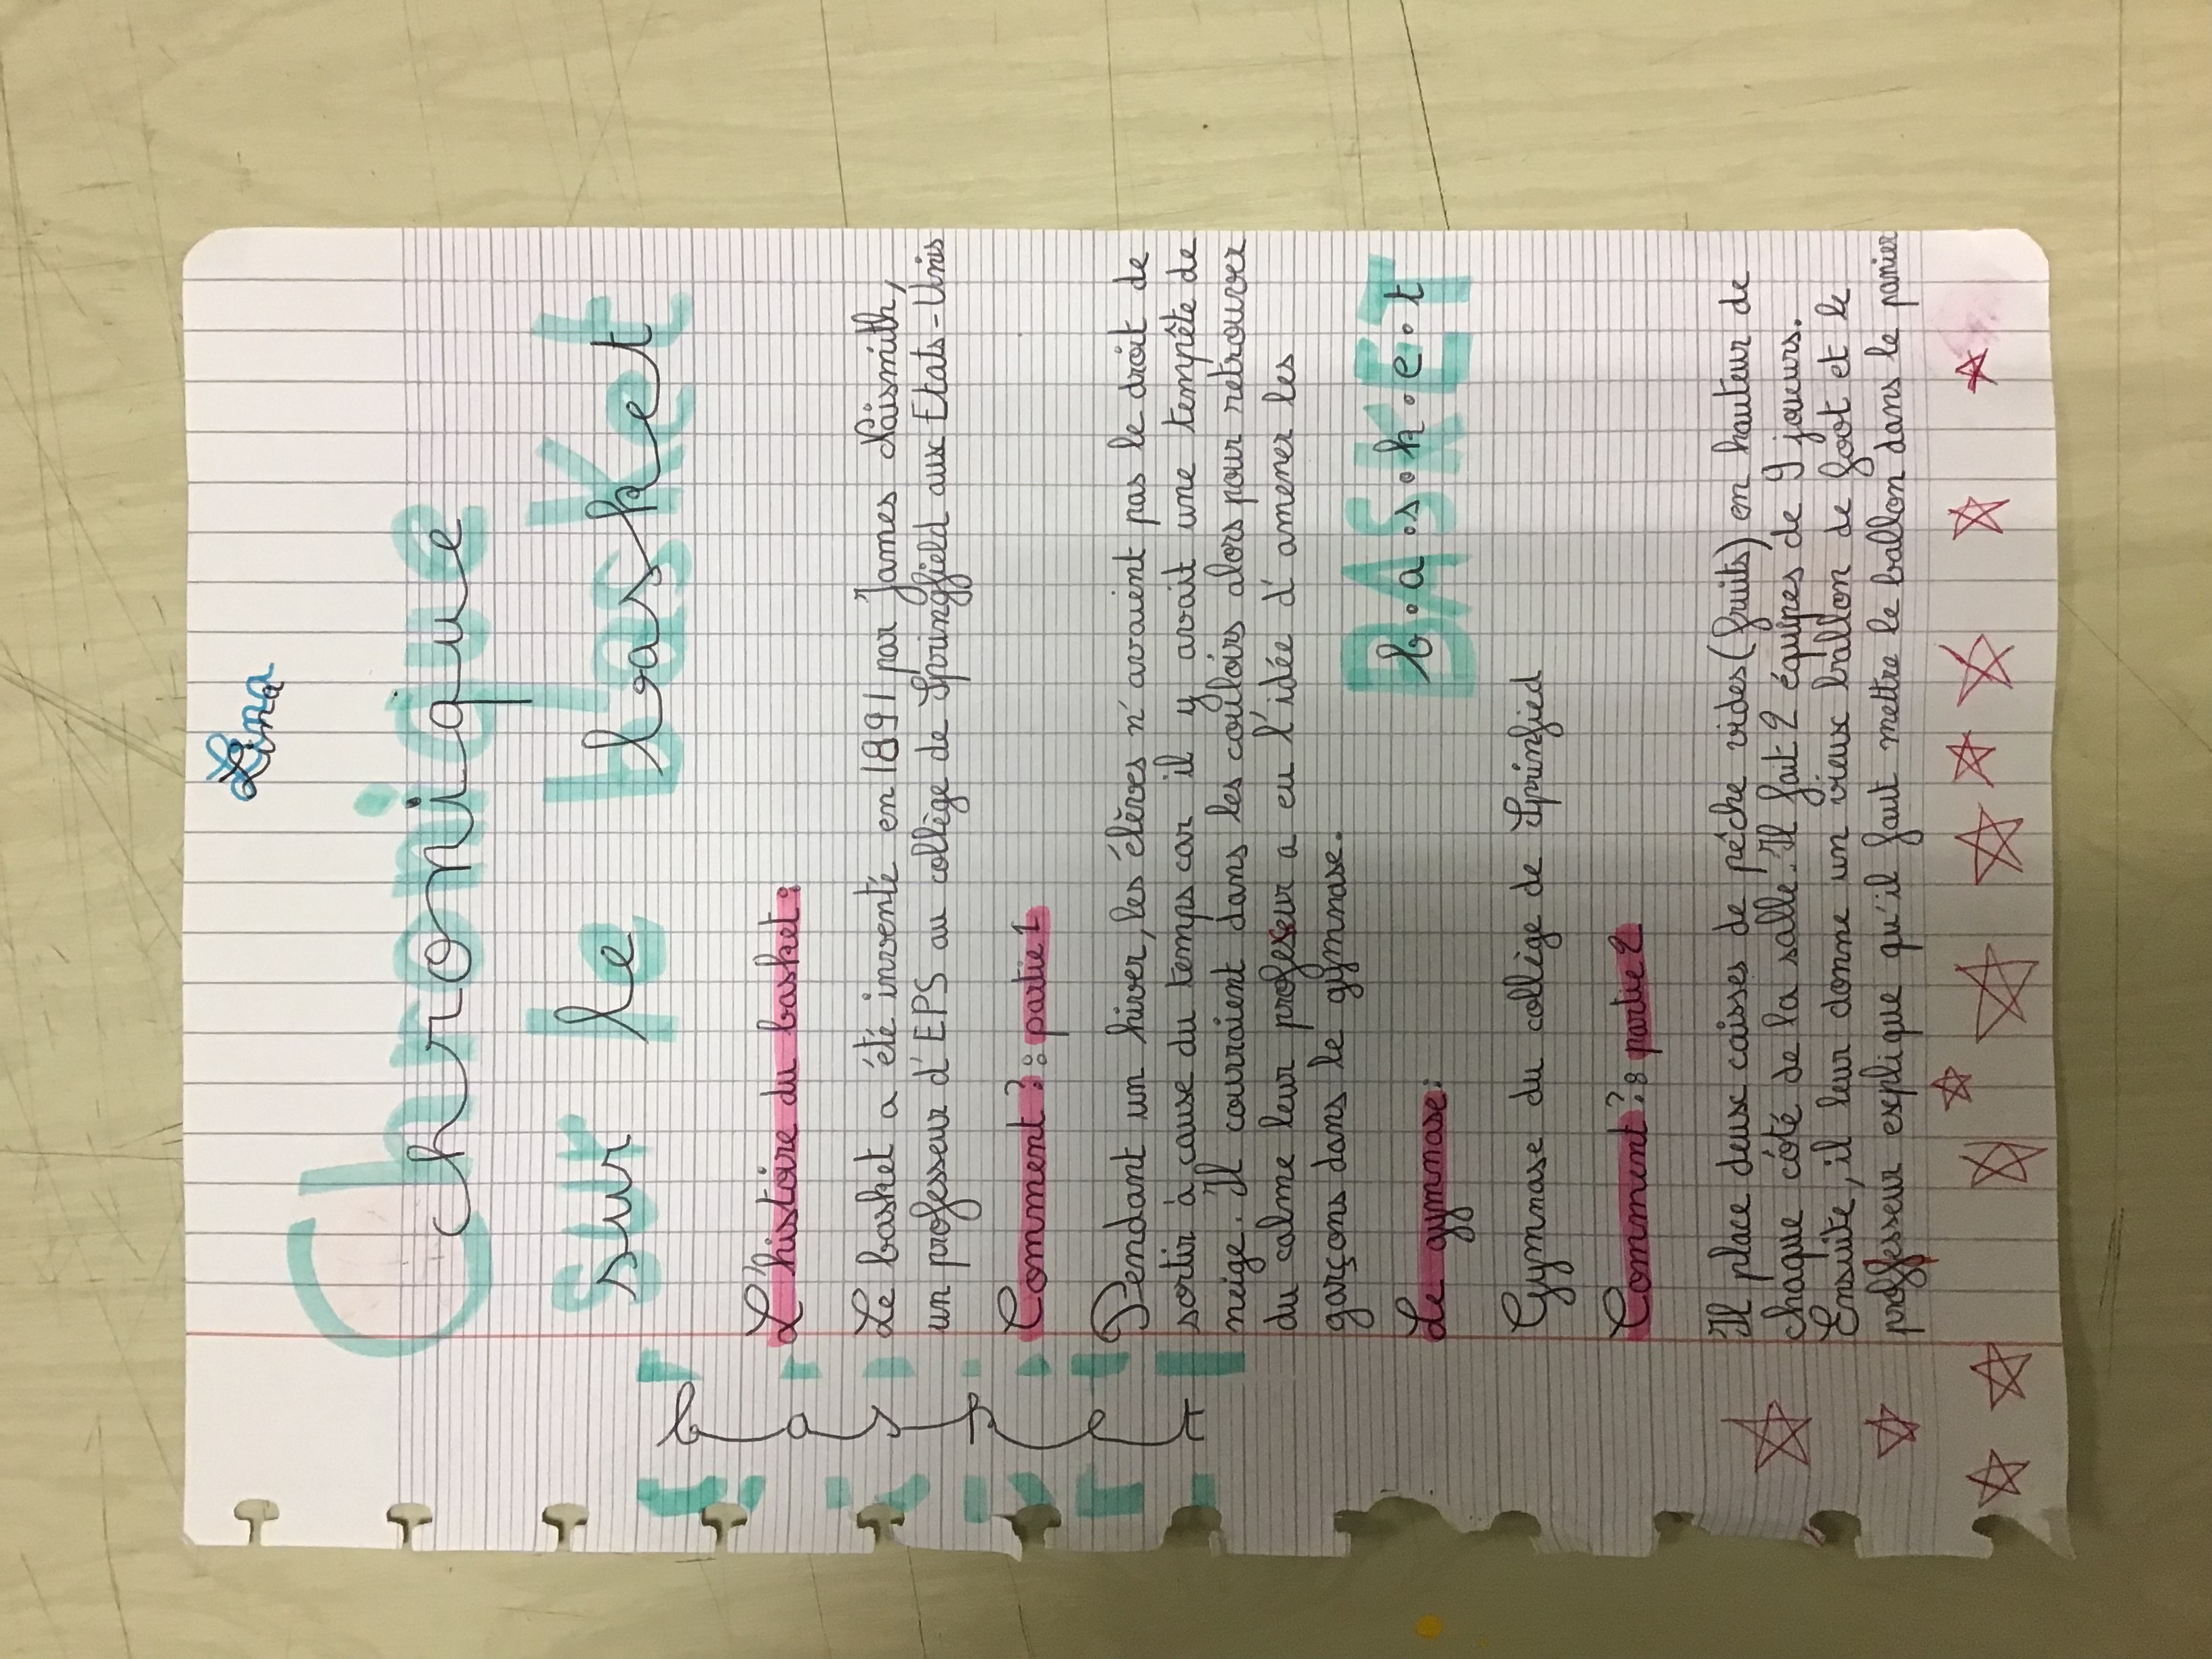 Lina
Chronique
sur le basket
L'histoire du basket :
Le basket a été inventé en 1891 par James Naismith,
un professeur d'EPS au collège de Springfield aux Etats-Unis
Comment ? : partie 1
Pendant un hiver, les élèves n'avaient pas le droit de
sortir à cause du temps car il y avait une tempête de
neige. Il courraient dans les couloirs alors pour retrouver
du calme leur professeur a eu l'idée d'amener les
garçons dans le gymnase.
BASKET
b.a.s.k.e.t
Le gymnase :
Gymnase du collège de Sprinfied
Comment ? : partie 2
Il place deux caisses de pêche vides (fruits) en hauteur de
chaque côté de la salle. Il fait 2 équipes de 9 joueurs.
Ensuite, il leur donne un vieux ballon de foot et le
professeur explique qu'il faut mettre le ballon dans le panier
basket